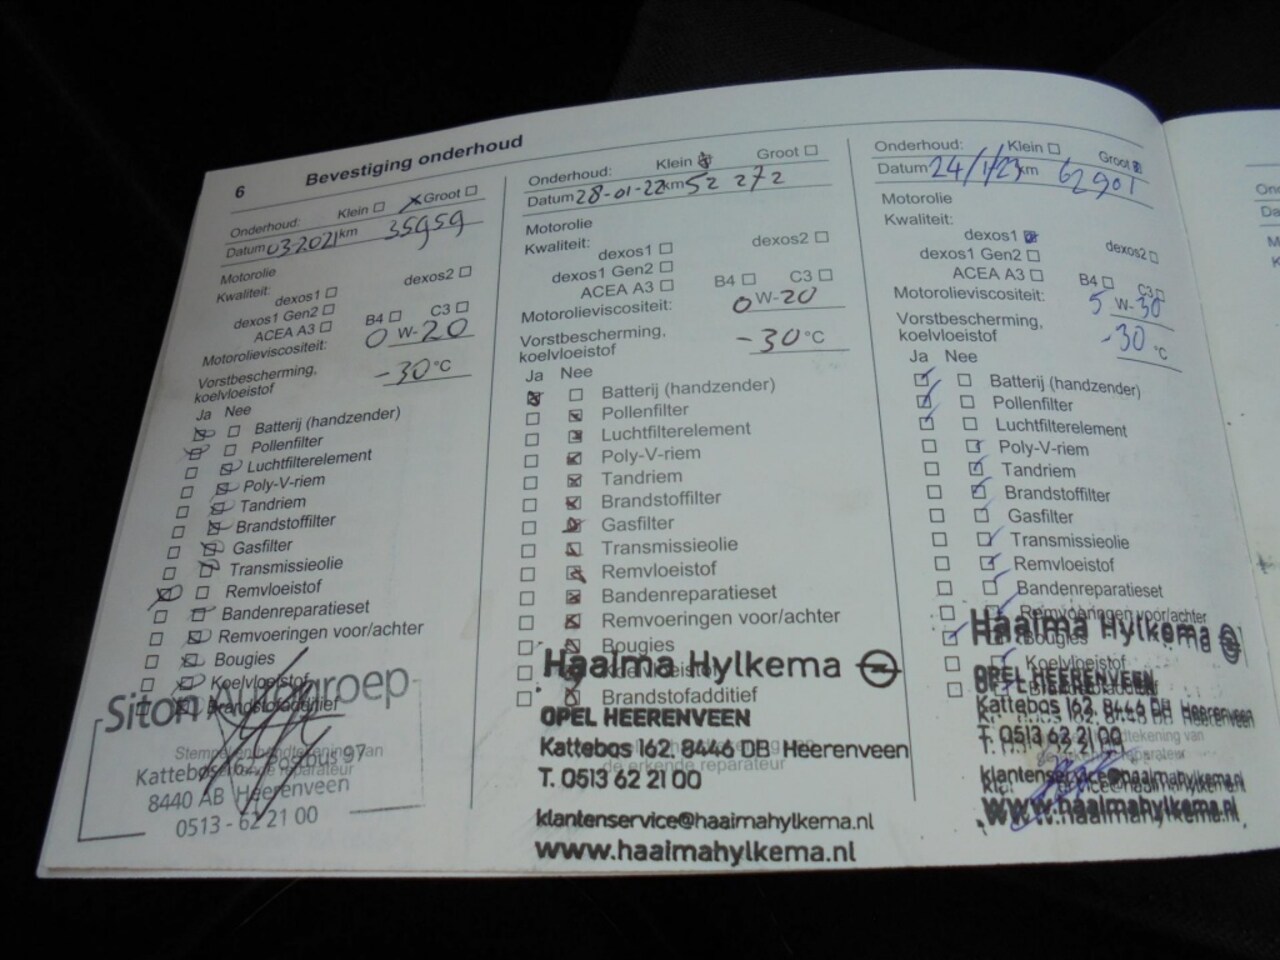 6 Bevestiging onderhoud
Onderhoud: Klein Groot
Datum 03-2021 km 35959
Motorolie
Kwaliteit: dexos1 dexos2
dexos1 Gen2
ACEA A3 B4 C3
Motorolieviscositeit: 0 W-20
Vorstbescherming,
koelvloeistof -30 °C
Ja Nee
Batterij (handzender)
Pollenfilter
Luchtfilterelement
Poly-V-riem
Tandriem
Brandstoffilter
Gasfilter
Transmissieolie
Remvloeistof
Bandenreparatieset
Remvoeringen voor/achter
Bougies
Koelvloeistof
Brandstofadditief
Siton Autogroep
Stempel en handtekening van
de erkende reparateur
Kattebos 162, Postbus 97
8440 AB Heerenveen
0513 - 62 21 00
Onderhoud: Klein Groot
Datum 28-01-22 km 52 272
Motorolie
Kwaliteit: dexos1 dexos2
dexos1 Gen2
ACEA A3 B4 C3
Motorolieviscositeit: 0 W-20
Vorstbescherming,
koelvloeistof -30 °C
Ja Nee
Batterij (handzender)
Pollenfilter
Luchtfilterelement
Poly-V-riem
Tandriem
Brandstoffilter
Gasfilter
Transmissieolie
Remvloeistof
Bandenreparatieset
Remvoeringen voor/achter
Bougies
Koelvloeistof
Brandstofadditief
Haaima Hylkema
OPEL HEERENVEEN
Kattebos 162, 8446 DB Heerenveen
de erkende reparateur
T. 0513 62 21 00
klantenservice@haaimahylkema.nl
www.haaimahylkema.nl
Onderhoud: Klein Groot
Datum 24/1/23 km 62901
Motorolie
Kwaliteit:
dexos1 dexos2
dexos1 Gen2
ACEA A3 B4 C3
Motorolieviscositeit: 5 W-30
Vorstbescherming,
koelvloeistof -30 °C
Ja Nee
Batterij (handzender)
Pollenfilter
Luchtfilterelement
Poly-V-riem
Tandriem
Brandstoffilter
Gasfilter
Transmissieolie
Remvloeistof
Bandenreparatieset
Remvoeringen voor/achter
Bougies
Koelvloeistof
Haaima Hylkema
OPEL HEERENVEEN
Kattebos 162, 8446 DB Heerenveen
T. 0513 62 21 00
klantenservice@haaimahylkema.nl
www.haaimahylkema.nl